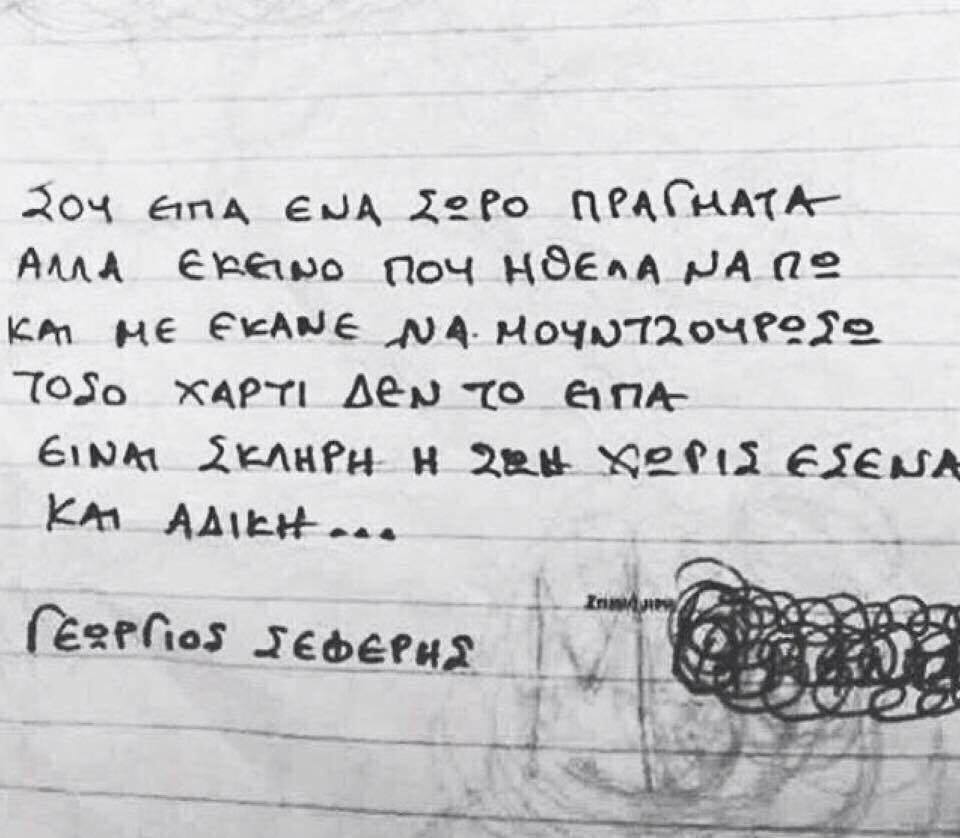 ΣΟΥ ΕΙΠΑ ΕΝΑ ΣΩΡΟ ΠΡΑΓΜΑΤΑ
ΑΛΛΑ ΕΚΕΙΝΟ ΠΟΥ ΗΘΕΛΑ ΝΑ ΠΩ
ΚΑΙ ΜΕ ΕΚΑΝΕ ΝΑ ΜΟΥΝΤΖΟΥΡΩΣΩ
ΤΟΣΟ ΧΑΡΤΙ ΔΕΝ ΤΟ ΕΙΠΑ
ΕΙΝΑΙ ΣΚΛΗΡΗ Η ΖΩΗ ΧΩΡΙΣ ΕΣΕΝΑ
ΚΑΙ ΑΔΙΚΗ...
ΓΕΩΡΓΙΟΣ ΣΕΦΕΡΗΣ